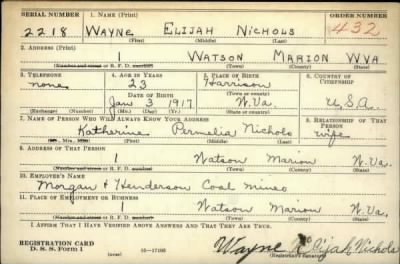 SERIAL NUMBER 1. NAME (Print) ORDER NUMBER
2218 WAYNE ELIJAH NICHOLS 432
(First) (Middle) (Last)
2. ADDRESS (Print)
1 WATSON MARION WVA
(Number and street or R. F. D. number) (Town) (County) (State)
3. TELEPHONE 4. AGE IN YEARS 5. PLACE OF BIRTH 6. COUNTRY OF CITIZENSHIP
none 23 Harrison
DATE OF BIRTH (Town or county)
Jan 3 1917 W.Va. U.S.A.
(Exchange) (Number) (Mo.) (Day) (Yr.) (State or country)
7. NAME OF PERSON WHO WILL ALWAYS KNOW YOUR ADDRESS 8. RELATIONSHIP OF THAT PERSON
Katherine Permelia Nichols wife
(Mr., Mrs., Miss) (First) (Middle) (Last)
9. ADDRESS OF THAT PERSON
1 Watson Marion W.Va.
(Number and street or R. F. D. number) (Town) (County) (State)
10. EMPLOYER'S NAME
Morgan & Henderson Coal mines
11. PLACE OF EMPLOYMENT OR BUSINESS
1 Watson Marion W.Va.
(Number and street or R. F. D. number) (Town) (County) (State)
I AFFIRM THAT I HAVE VERIFIED ABOVE ANSWERS AND THAT THEY ARE TRUE.
REGISTRATION CARD
D. S. S. Form 1 (over) 16-17105 Wayne Elijah Nichols
(Registrant's signature)